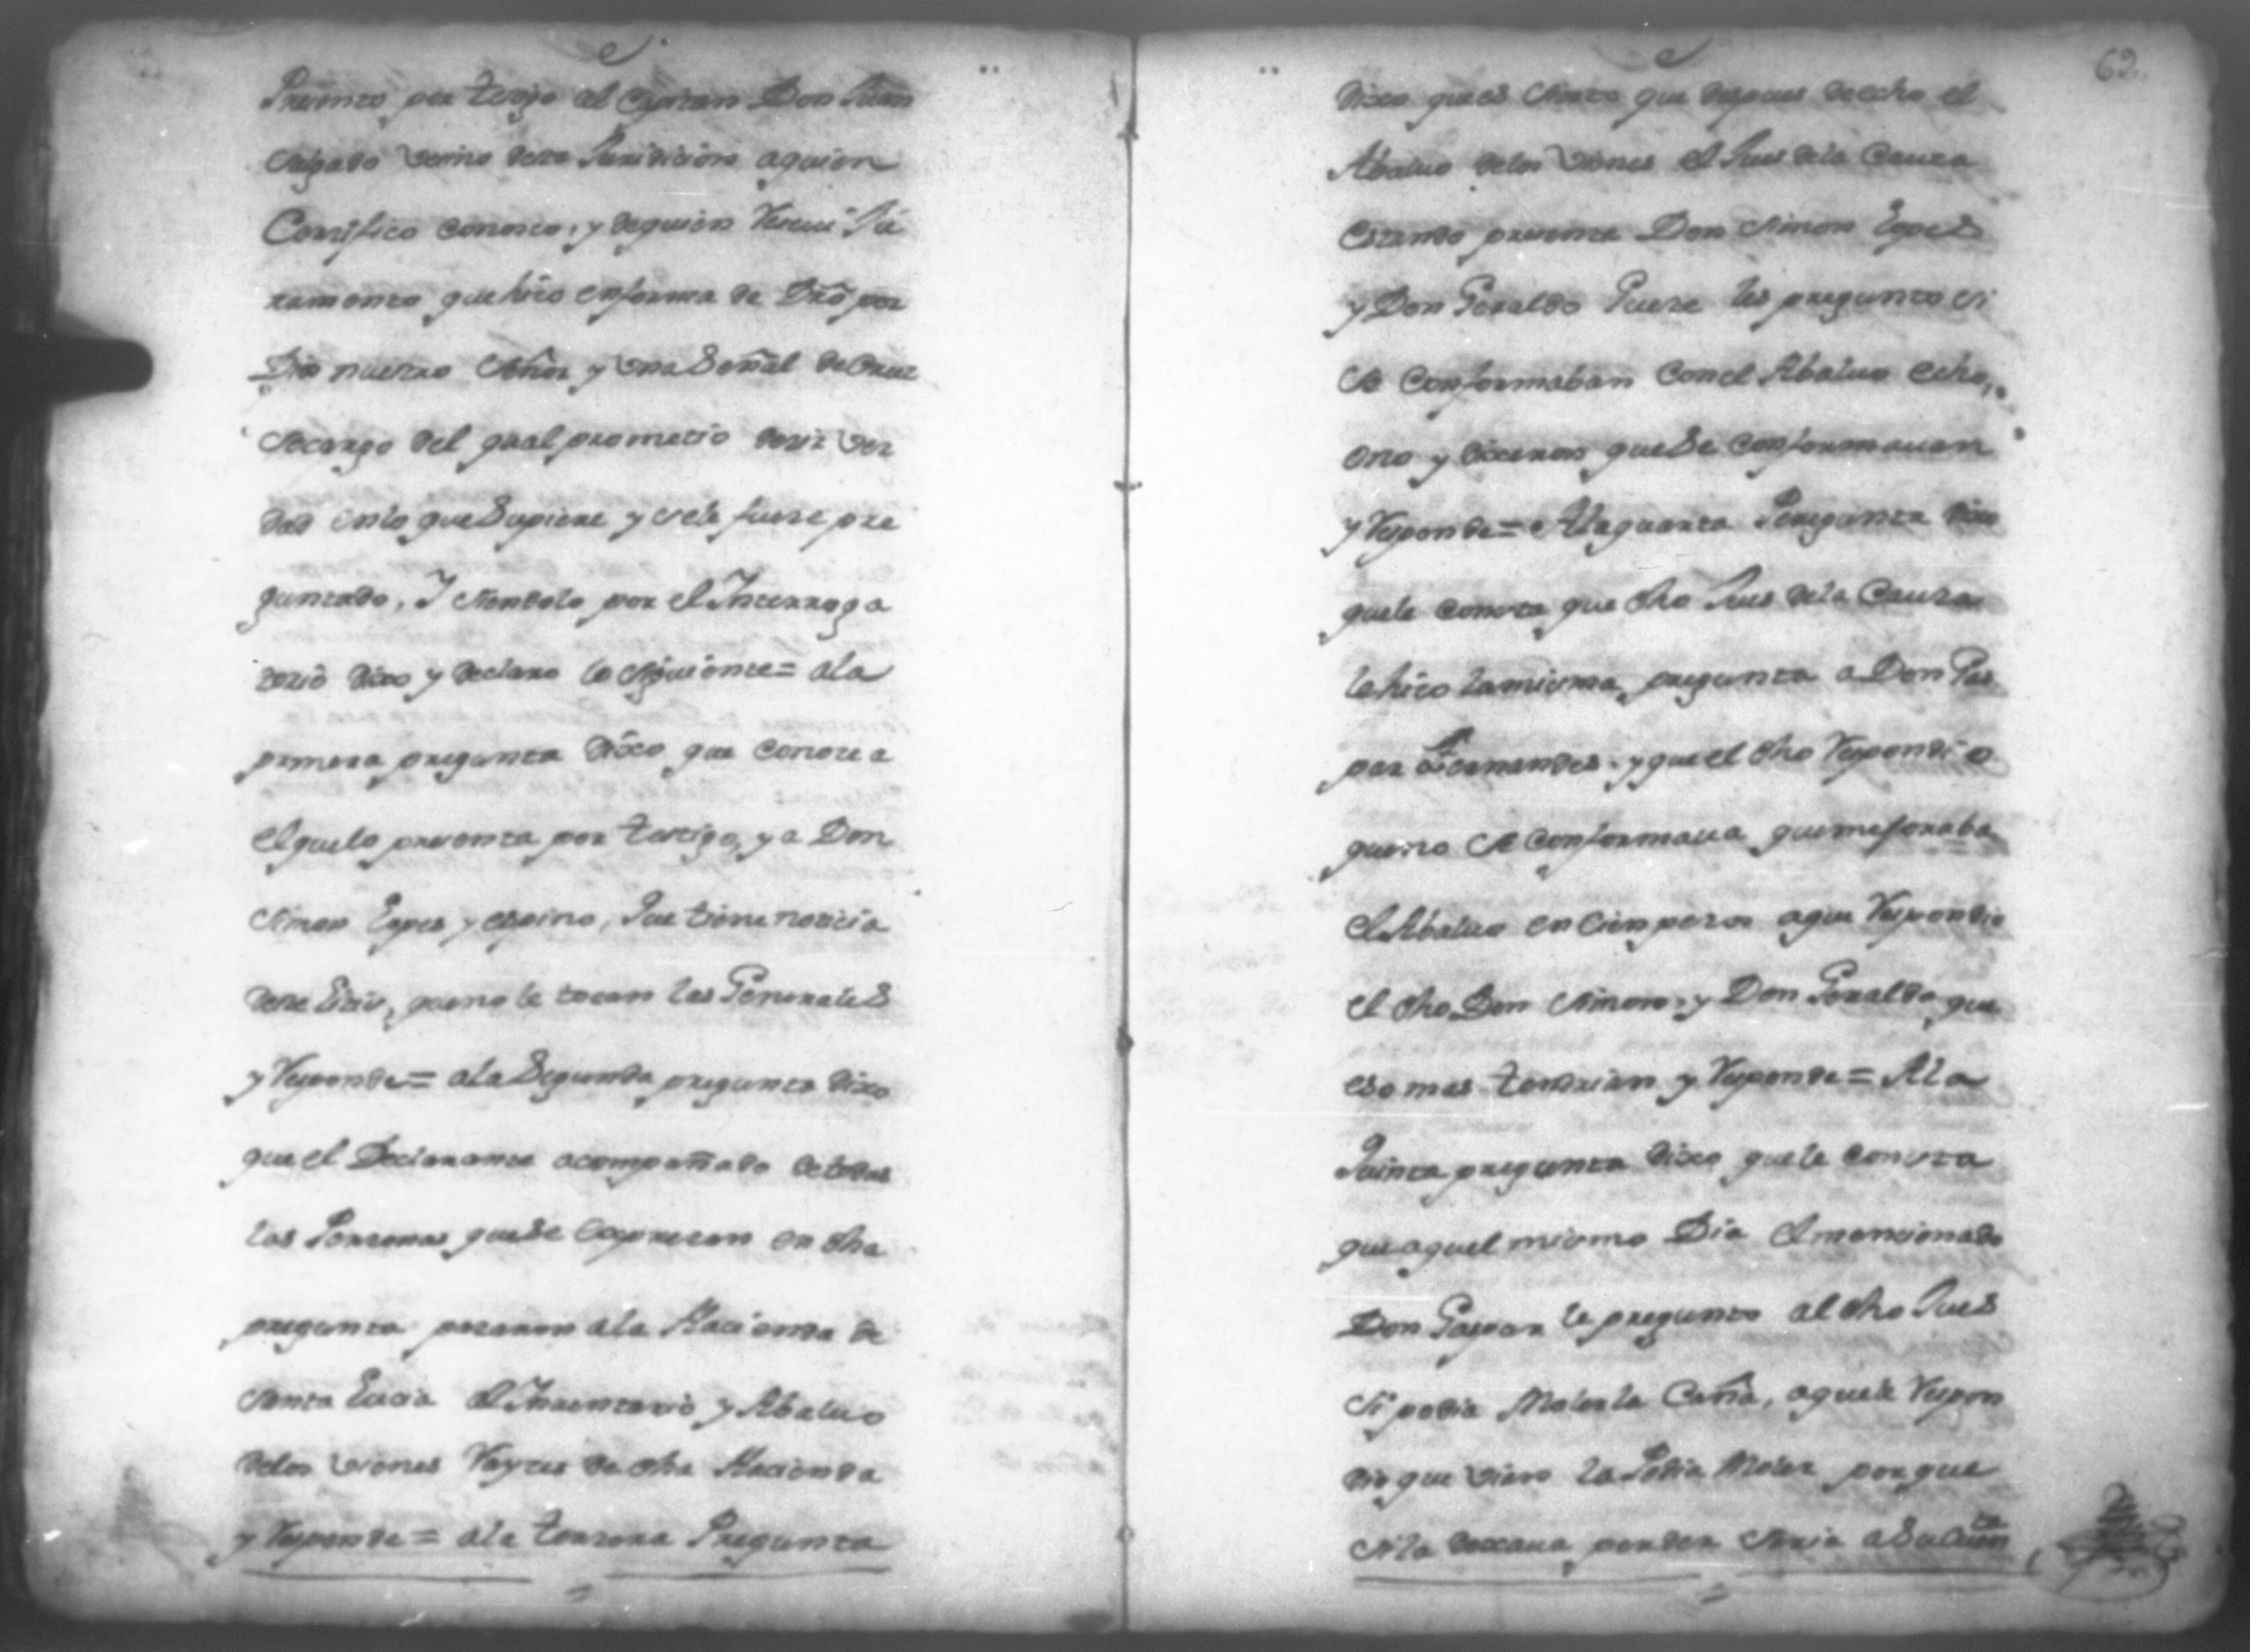 Presento por testigo al Capitan Don Juan
Salgado vecino desta Jurisdicion aquien
Certifico conosco, y dequien Reseui Ju
ramento que hiso enforma de Dro por
Dios nuestro Señor y vna Señal de Cruz
Socargo del qual prometio desir ver
dad enlo que Supiere y sele fuere pre
guntado, Y siendolo por el Interroga
torio dixo y declaro lo siguiente = ala
primera pregunta dixo que conose a
el quelo presenta por testigo, y a Don
Simon Lopes y espino, que tiene noticia
deste Litis, queno le tocan las Generales
y Responde = ala Segunda pregunta dixo
que el Declarante acompañado de todas
las Personas queSe expresan en dha
pregunta pasaron ala Hacienda de
Santa Lucia al Inventario y Abaluo
delos vienes Rayses de dha Hacienda
y Responde = ala tersera Pregunta
62
dixo ques sierto que despues de echo el
Abaluo delos vienes el Jues dela Causa
estando presente Don Simon Lopes
y Don Geraldo les pregunto si
se Conformaban Conel Abaluo echo,
y dixeron queSe conformauan
y Responde = Ala quarta Peregunta dixo
quele consta que dho Jues dela Causa
le hiso lamisma pregunta a Don Gas
par Hernandes, y que el dho Respondio
queno se Conformaua quemejoraba
el Abaluo en Cien pesos aque Respondio
el dho Don Simon, y Don Geraldo que
eso mas tendrian y Responde = Ala
Quinta pregunta dixo quele consta
que aquel mismo Dia el mencionado
Don Gaspar le pregunto al dho Jues
Si podia Moler la Caña, aquele Respon
dio que vien la Podia Moler porque
Si la dexaua perder Seria aSu Cuenta